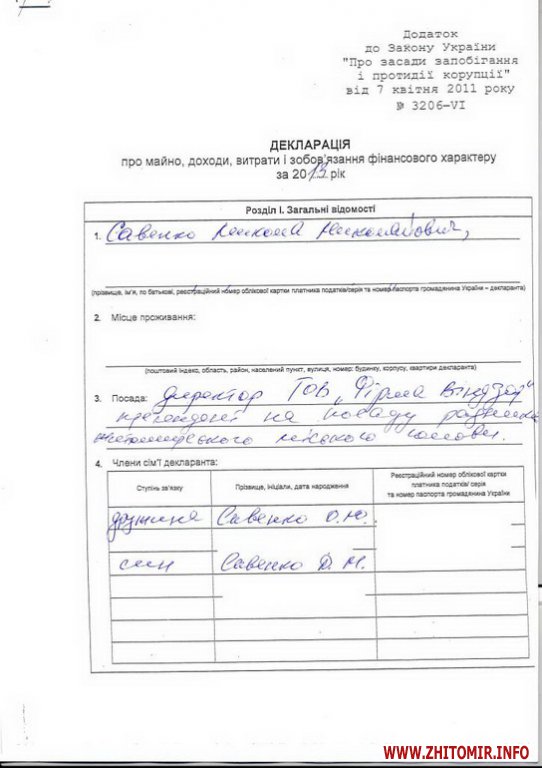 Додаток
до Закону України
"Про засади запобігання
і протидії корупції"
від 7 квітня 2011 року
№ 3206-VI
ДЕКЛАРАЦІЯ
про майно, доходи, витрати і зобов'язання фінансового характеру
за 2013 рік
Розділ І. Загальні відомості
1. Савенко Микола Миколайович,
(прізвище, ім'я, по батькові, реєстраційний номер облікової картки платника податків/серія та номер паспорта громадянина України – декларанта)
2. Місце проживання:
(поштовий індекс, область, район, населений пункт, вулиця, номер: будинку, корпусу, квартири декларанта)
3. Посада: директор ТОВ „Фірма
на посаду радника
житомирського міського голови.
4. Члени сім'ї декларанта:
Ступінь зв'язку Прізвище, ініціали, дата народження Реєстраційний номер облікової картки платника податків/ серія та номер паспорта громадянина України
дружина Савенко О.Ю.
син Савенко Д.М.
WWW.ZHITOMIR.INFO